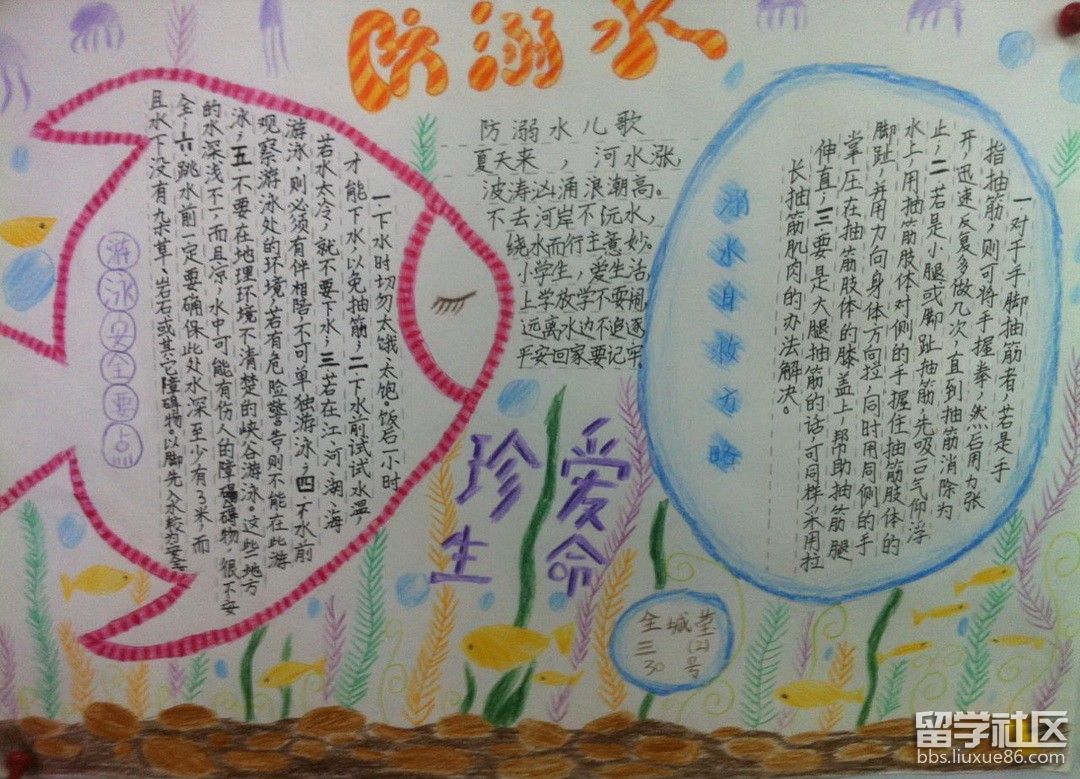 防溺水
游泳安全要点
一下水时切勿太饿、太饱。饭后一小时
才能下水,以免抽筋,二下水前试试水温,
若水太冷,就不要下水,三若在江、河、湖、海
游泳,则必须有伴相陪不可单独游泳,四不水前
观察游泳处的环境,若有危险警告,则不能在此游
泳,五不要在地理环境不清楚的峡合游泳。这些地方
的水深浅不,而且凉,水中可能有伤人的障碍物,很不安
全,六跳水前一定要确保此处水深至少有3米,而
且水下没有杂草、岩石或其它障碍物,以脚先入水较为安全
防溺水儿歌
夏天来,河水涨,
波涛汹涌浪潮高。
不去河岸不沅水,
绕水而行主意妙。
小学生,爱生活,
上学放学不要闹,
远离水边不追逐,
平安回家要记牢。
珍爱
生命
溺水自救方略
一对于手脚抽筋者,若是手
指抽筋,则可将手握拳,然后用力张
开,迅速反复多做几次,直到抽筋消除为
止,二若是小腿或脚趾抽筋,先吸口气仰浮
水上,用抽筋肢体对侧的手握住抽筋肢体的
脚趾,并用力向身体方向拉,同时用同侧的手
掌压在抽筋肢体的膝盖上,帮助抽筋腿
伸直,三要是大腿抽筋的话,可同样采用拉
长抽筋肌肉的办法解决。
三(四)
30号
留学社区
bbs.liuxue86.com